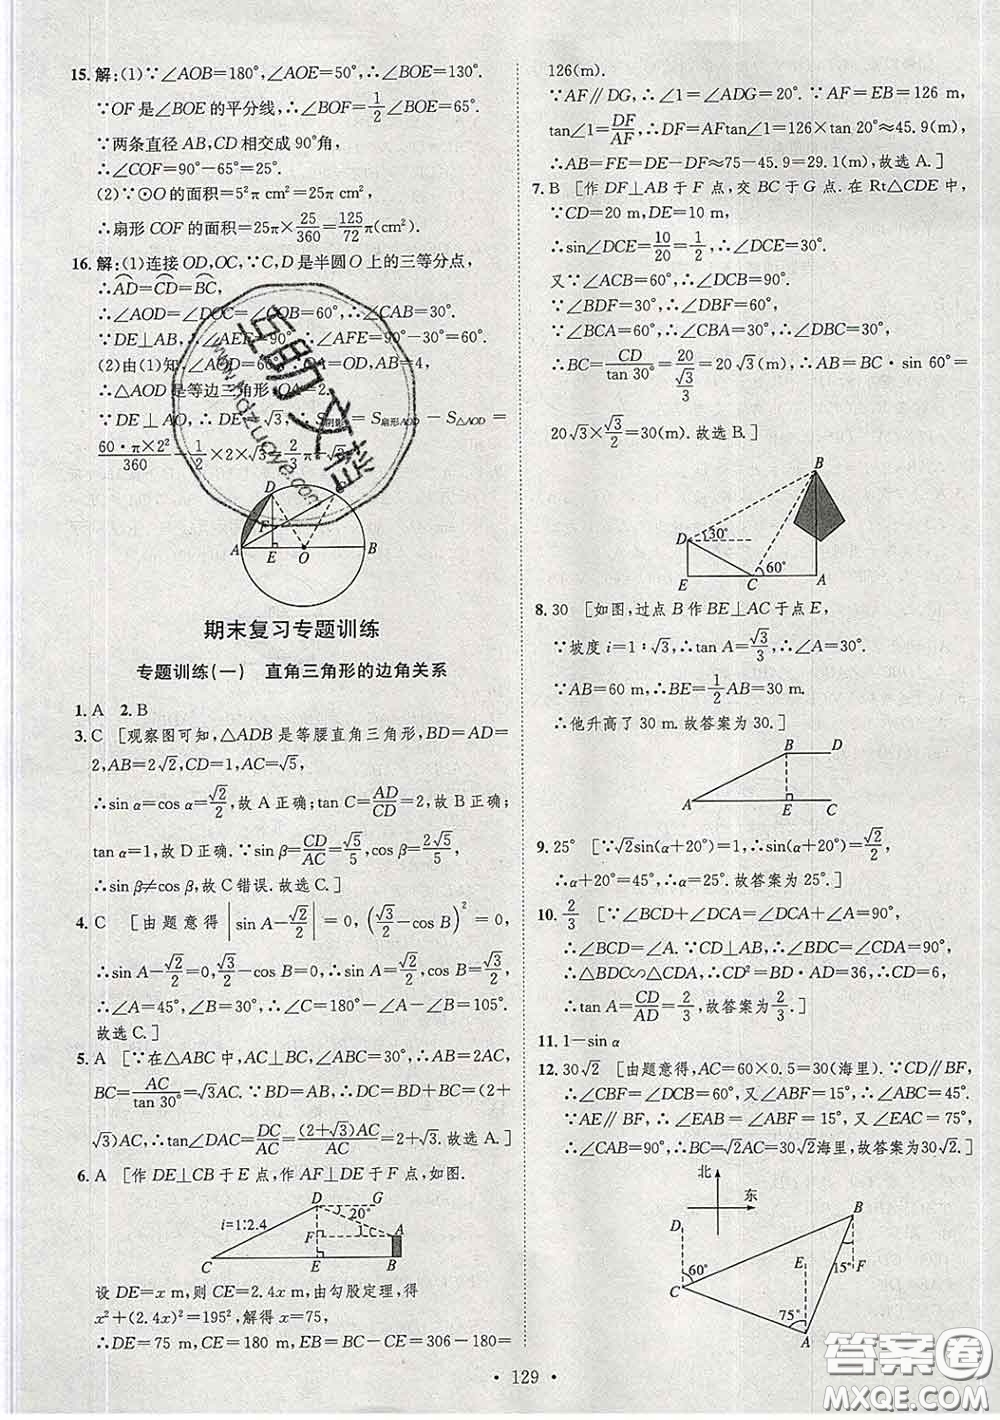 15. 解:(1)∵∠AOB=180°,∠AOE=50°,∴∠BOE=130°.
∵OF是∠BOE的平分线,∴∠BOF=1/2∠BOE=65°.
∵两条直径AB,CD相交成90°角,
∴∠COF=90°-65°=25°.
(2)∵⊙O的面积=5²π cm²=25π cm²,
∴扇形COF的面积=25π×25/360=125/72π(cm²).
16. 解:(1)连接OD,OC,∵C,D是半圆O上的三等分点,
∴AD=CD=BC,
∴∠AOD=∠DOC=∠COB=60°,∴∠CAB=30°.
∵DE⊥AB,∴∠AEF=90°,∴∠AFE=90°-30°=60°.
(2)由(1)知,∠AOD=60°,∵OA=OD,AB=4,
∴△AOD是等边三角形,OA=2.
∵DE⊥AO,∴DE=√3,∴S阴影=S扇形AOD-S△AOD=
60·π×2²/360-1/2×2×√3=2/3π-√3.
D C
F
A E O B
期末复习专题训练
专题训练(一) 直角三角形的边角关系
1. A 2. B
3. C [观察图可知,△ADB是等腰直角三角形,BD=AD=
2,AB=2√2,CD=1,AC=√5,
∴sin α=cos α=√2/2,故A正确;tan C=AD/CD=2,故B正确;
tan α=1,故D正确;∵sin β=CD/AC=√5/5,cos β=2√5/5,
∴sin β≠cos β,故C错误.故选C.]
4. C [由题意得|sin A-√2/2|=0,(√3/2-cos B)²=0,
∴sin A-√2/2=0,√3/2-cos B=0,∴sin A=√2/2,cos B=√3/2,
∴∠A=45°,∠B=30°,∴∠C=180°-∠A-∠B=105°.
故选C.]
5. A [∵在△ABC中,AC⊥BC,∠ABC=30°,∴AB=2AC,
BC=AC/tan 30°=√3AC.∵BD=AB,∴DC=BD+BC=(2+
√3)AC,∴tan∠DAC=DC/AC=(2+√3)AC/AC=2+√3.故选A.]
6. A [作DE⊥CB于E点,作AF⊥DE于F点,如图.
D G
20°
i=1:2.4
F 1 A
C E B
设DE=x m,则CE=2.4x m,由勾股定理,得
x²+(2.4x)²=195²,解得x=75,
∴DE=75 m,CE=180 m,EB=BC-CE=306-180=
126(m).
∵AF∥DG,∴∠1=∠ADG=20°.∵AF=EB=126 m,
tan∠1=DF/AF,∴DF=AFtan∠1=126×tan 20°≈45.9(m),
∴AB=FE=DE-DF≈75-45.9=29.1(m),故选A.]
7. B [作DF⊥AB于F点,交BC于G点.在Rt△CDE中,
∵CD=20 m,DE=10 m,
∴sin∠DCE=10/20=1/2,∴∠DCE=30°.
又∵∠ACB=60°,∴∠DCB=90°.
∵∠BDF=30°,∴∠DBF=60°.
∵∠BCA=60°,∴∠CBA=30°,∴∠DBC=30°.
∴BC=CD/tan 30°=20/(√3/3)=20√3(m),∴AB=BC·sin 60°=
20√3×√3/2=30(m).故选B.]
B
D 30°
60°
E C A
8. 30 [如图,过点B作BE⊥AC于点E,
∵坡度i=1:√3,∴tan A=√3/3,∴∠A=30°.
∵AB=60 m,∴BE=1/2AB=30 m.
∴他升高了30 m.故答案为30.]
B D
A E C
9. 25° [∵√2sin(α+20°)=1,∴sin(α+20°)=√2/2,
∴α+20°=45°,∴α=25°.故答案为25°.]
10. 2/3 [∵∠BCD+∠DCA=∠DCA+∠A=90°,
∴∠BCD=∠A.∵CD⊥AB,∴∠BDC=∠CDA=90°,
∴△BDC∽△CDA,∴CD²=BD·AD=36,∴CD=6,
∴tan A=CD/AD=2/3,故答案为2/3.]
11. 1-sin α
12. 30√2 [由题意得,AC=60×0.5=30(海里).∵CD∥BF,
∴∠CBF=∠DCB=60°,又∠ABF=15°,∴∠ABC=45°.
∵AE∥BF,∴∠EAB=∠ABF=15°,又∠EAC=75°,
∴∠CAB=90°,∴BC=√2AC=30√2海里,故答案为30√2.]
北
东
D B
E
60° 15° F
C 75°
A
• 129 •
互助文档
www.hdzuoye.com
答案圈
MXQE.COM